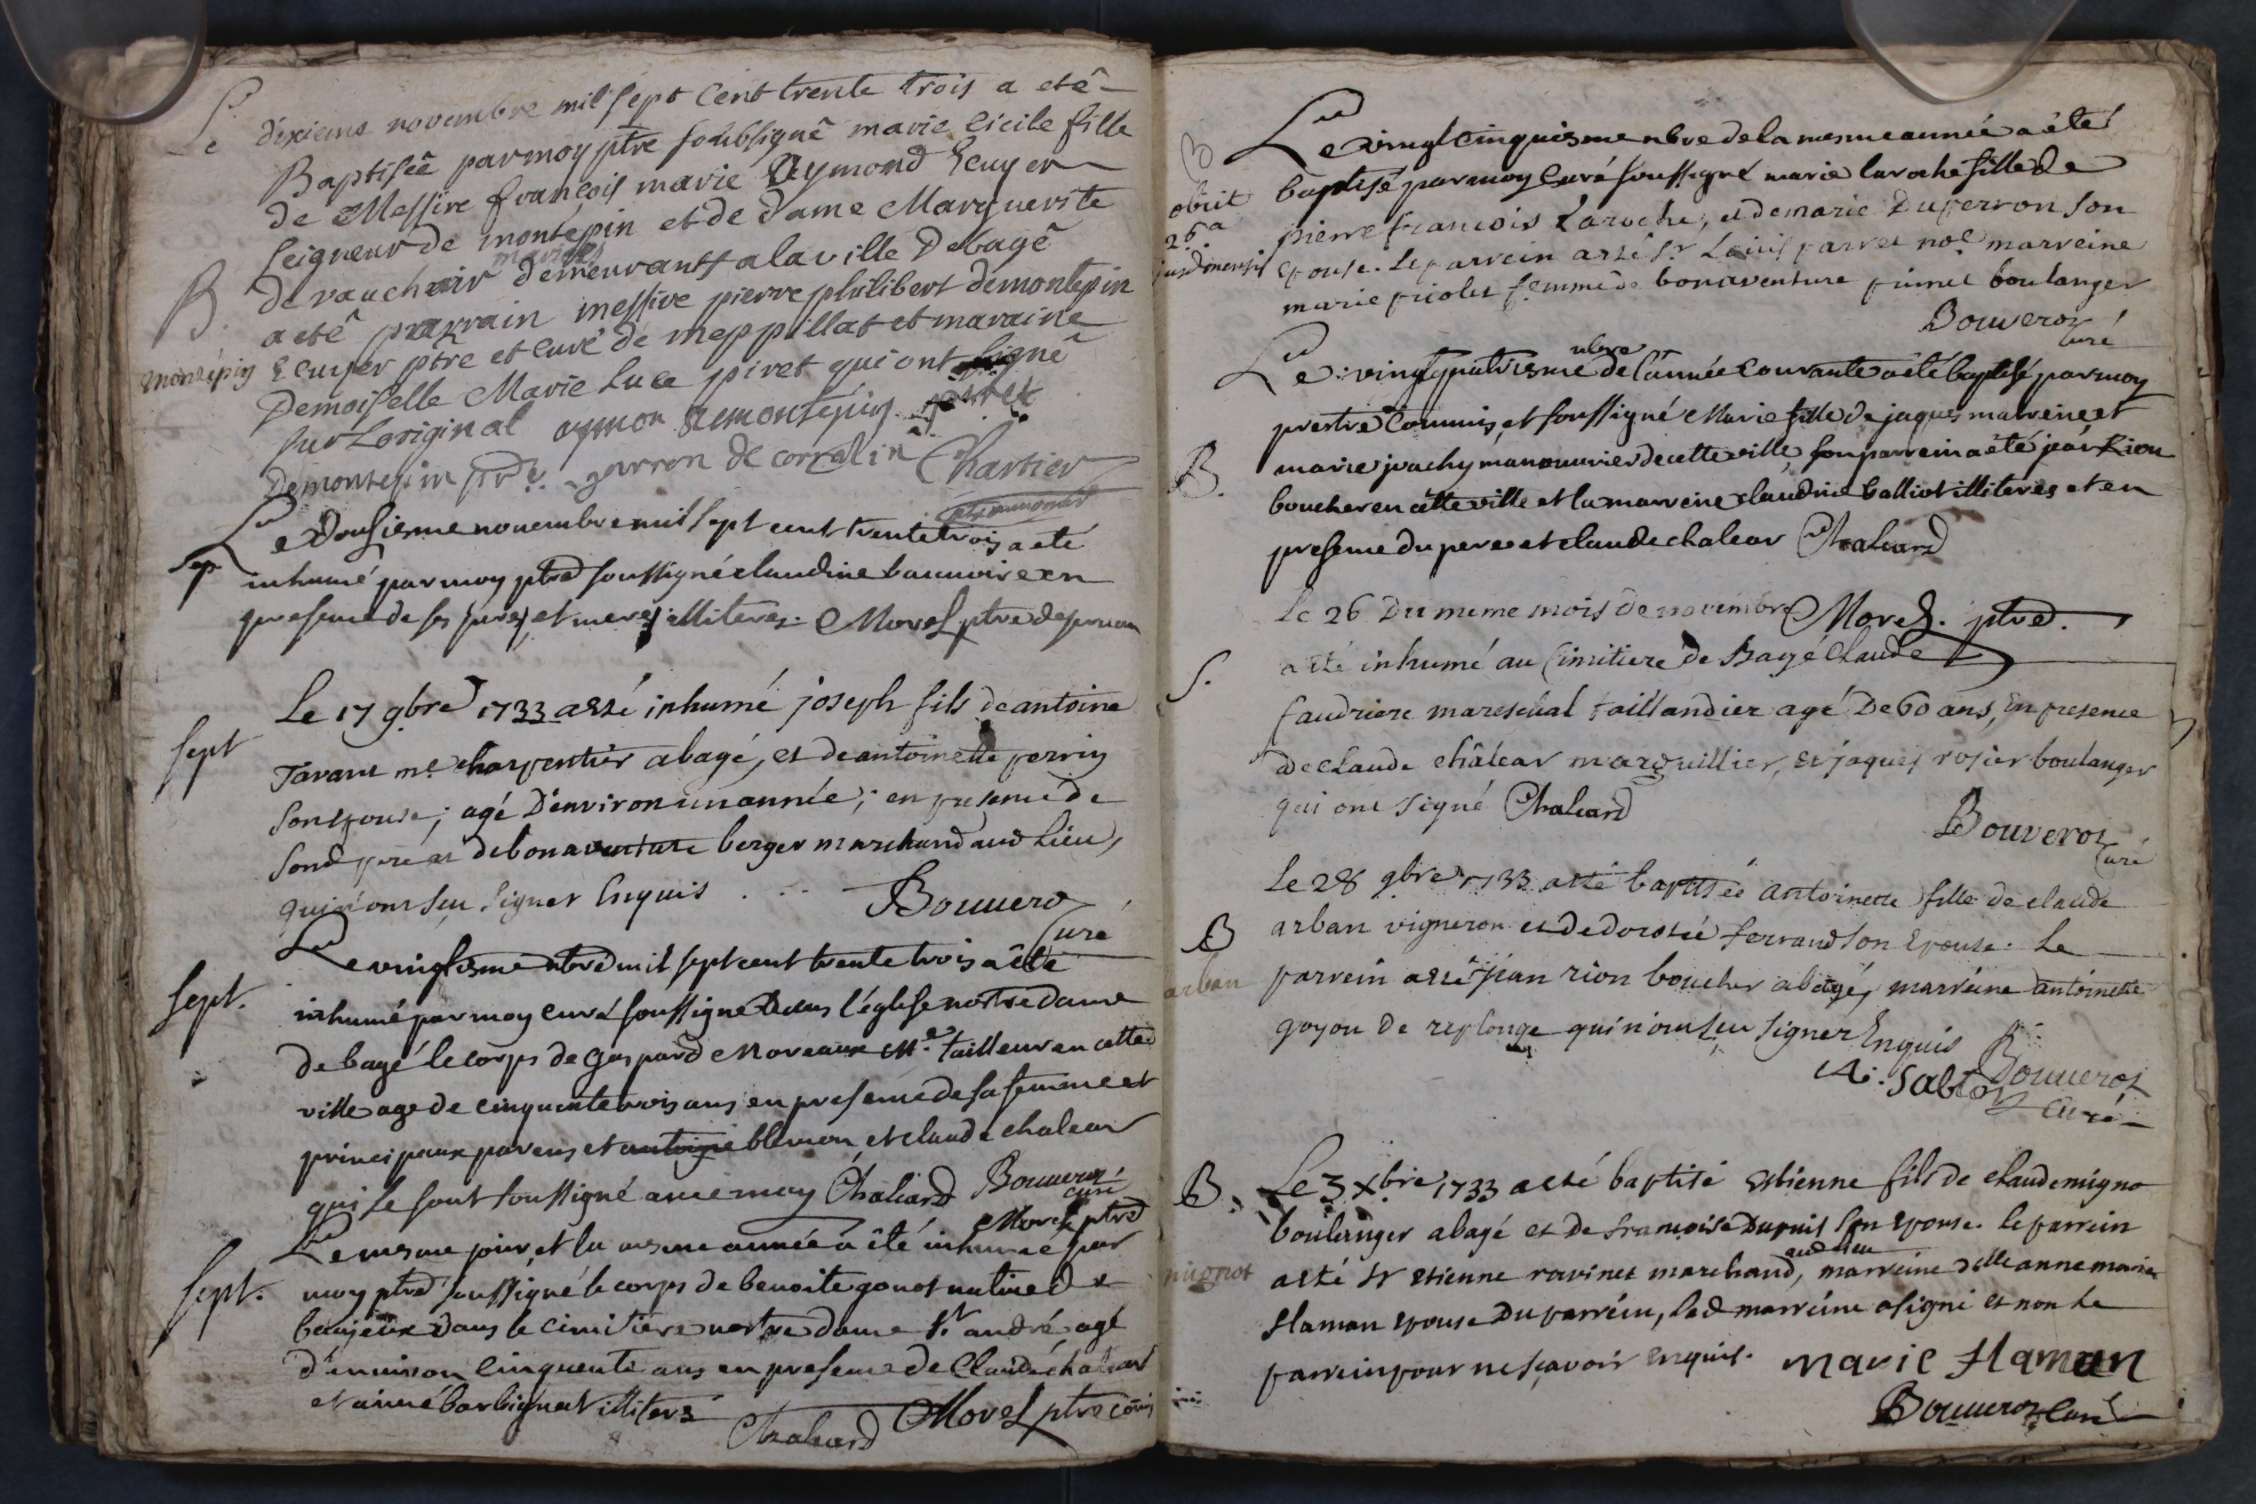 Le dixieme novembre mil sept cent trente trois a eté
Baptisée par moy ptre soubsigné marie cicile fille
de Messire françois marie Aymond Ecuyer
seigneur de montépin et de dame Marguerite
de vauchair mariés demeurants a la ville de bagé
B. a eté parrain messire pierre philibert demontepin
montépin Ecuyer ptre et curé de meppillat et maraine
Demoiselle Marie Luce piret qui ont signé
sur Loriginal aymon demontépin piret
Demontepin garron de corcalin Chartier
Le dousiesme novembre mil sept cent trente trois a eté
Sep inhumé par moy ptre soussigné claudine en
presence de ses peres et meres illiteres. Morel ptre
Le 17 9bre 1733 a esté inhumé joseph fils de antoine
sept Tavant me charpentier a bagé, et de antoinette perrin
son epouse; agé d'environ une année; en presence de
sond pere et de bonaventure berger marchand aud Lieu,
qui n'ont sçu signer Enquis . . . Bouuero
Curé
Le vingtiesme nbre mil sept cent trente trois a êté
sept. inhumé par moy curé soussigné dans l'église nostre dame
de bagé le corps de gaspard Moreaux Me tailleur en cette
ville agé de cinquente trois ans en presence de sa femme et
principaux parens et antoine blemon et claude chalear
qui se sont soussigné avec moy Chaleard Bouueroz
curé
Morel ptre
Le mesme jour et la mesme année a êté inhumé par
sept. moy ptre soussigné le corps de benoite gonot native de
beaujeux dans le cimitiere nostre dame St andré agé
d'environ cinquente ans en presence de Claude chalear
et aimé barbignat illiteré
Chaleard Morel ptre comis
B Le vingt cinquiesme nbre de la mesme année a étés
obiit baptisé par moy Curé soussigné marie laroche fille de
26a pierre francois Laroche, et de marie Duperron son
ejusd. mensis epouse. Le parrein a esté Sr Louis parret noe marreine
marie piolet femme de bonaventure boulanger
Bouveroz
curé
Le vingt quatriesme nbre de l'année courante a eté baptisé par moy
prestre Commis, et soussigné Marie fille de jaques marreine et
marie joachy manouurier de cette ville, son parrein a êté jean Rion
B. boucher en cette ville et la marreine claudine balliot illiteres et en
presense du pere et claude chalear Chaleard
Morel. ptre.
Le 26 Du meme mois de novembre
S. a eté inhumé au Cimitiere de Bagé Claude
faudriere mareschal taillandier agé De 60 ans, En presence
de Claude châlear marguillier, et jaques rosier boulanger
qui ont signé Chaleard
Bouveroz
curé
Le 28 9bre 1733 a esté baptisée antoinette fille de claude
B arban vigneron et de dorotée ferrand son Epouse. Le
arban parrein a esté jean rion boucher a bagé, marreine antoinette
goyon de replonge qui n'ont sçu signer Enquis
Bouueroz
curé
B. Le 3 Xbre 1733 a esté baptisé Estienne fils de claude migno
boulanger a bagé et de francoise Dupuis son Epouse. le parrein
mignot a esté Sr Etienne ravinet marchand aud lieu, marreine delle anne marie
Haman Epouse Du parrein, lad marreine a signé et non le
parrein pour ne sçavoir Enquis. marie Haman
Bouueroz Curé